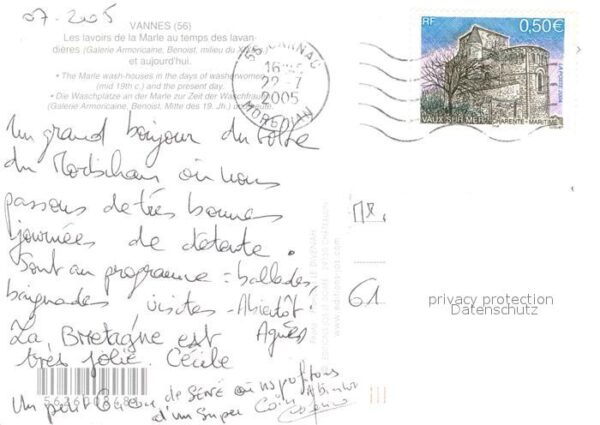 07.2005
VANNES (56)
Les lavoirs de la Marle au temps des lavan-
dières (Galerie Armoricaine, Benoist, milieu du
et aujourd'hui.
• The Marle wash-houses in the days of washerwomen
(mid 19th c.) and the present day.
• Die Waschplätze an der Marle zur Zeit der Waschfrauen
(Galerie Armoricaine, Benoist. Mitte des 19. Jh.) und heute.
56 CARNAC
16
22 - 7
2005
MORBIHAN
RF
0,50€
LA POSTE
VAUX SUR MER CHARENTE-MARITIME
Un grand bonjour du Golfe
du Morbihan où nous
passons de très bonnes
journées de détente.
Sont au programme : ballades,
baignades, visites - A bientôt
Agnès
La Bretagne est
très jolie. Cécile
Un petit de SENÉ où ns profitons
d'un super Coin A Bientôt
61
privacy protection
Datenschutz